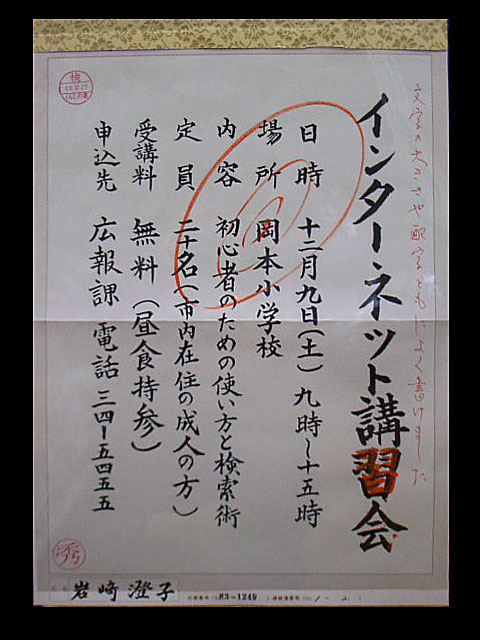 文字の大きさや配字ともによく書けました
インターネット講習会
日時　十二月九日(土)　九時〜十五時
場所　岡本小学校
内容　初心者のための使い方と検索術
定員　二十名(市内在住の成人の方)
受講料　無料(昼食持参)
申込先　広報課　電話　三四ー五四五五
検
秀
岩崎　澄子
83-1249